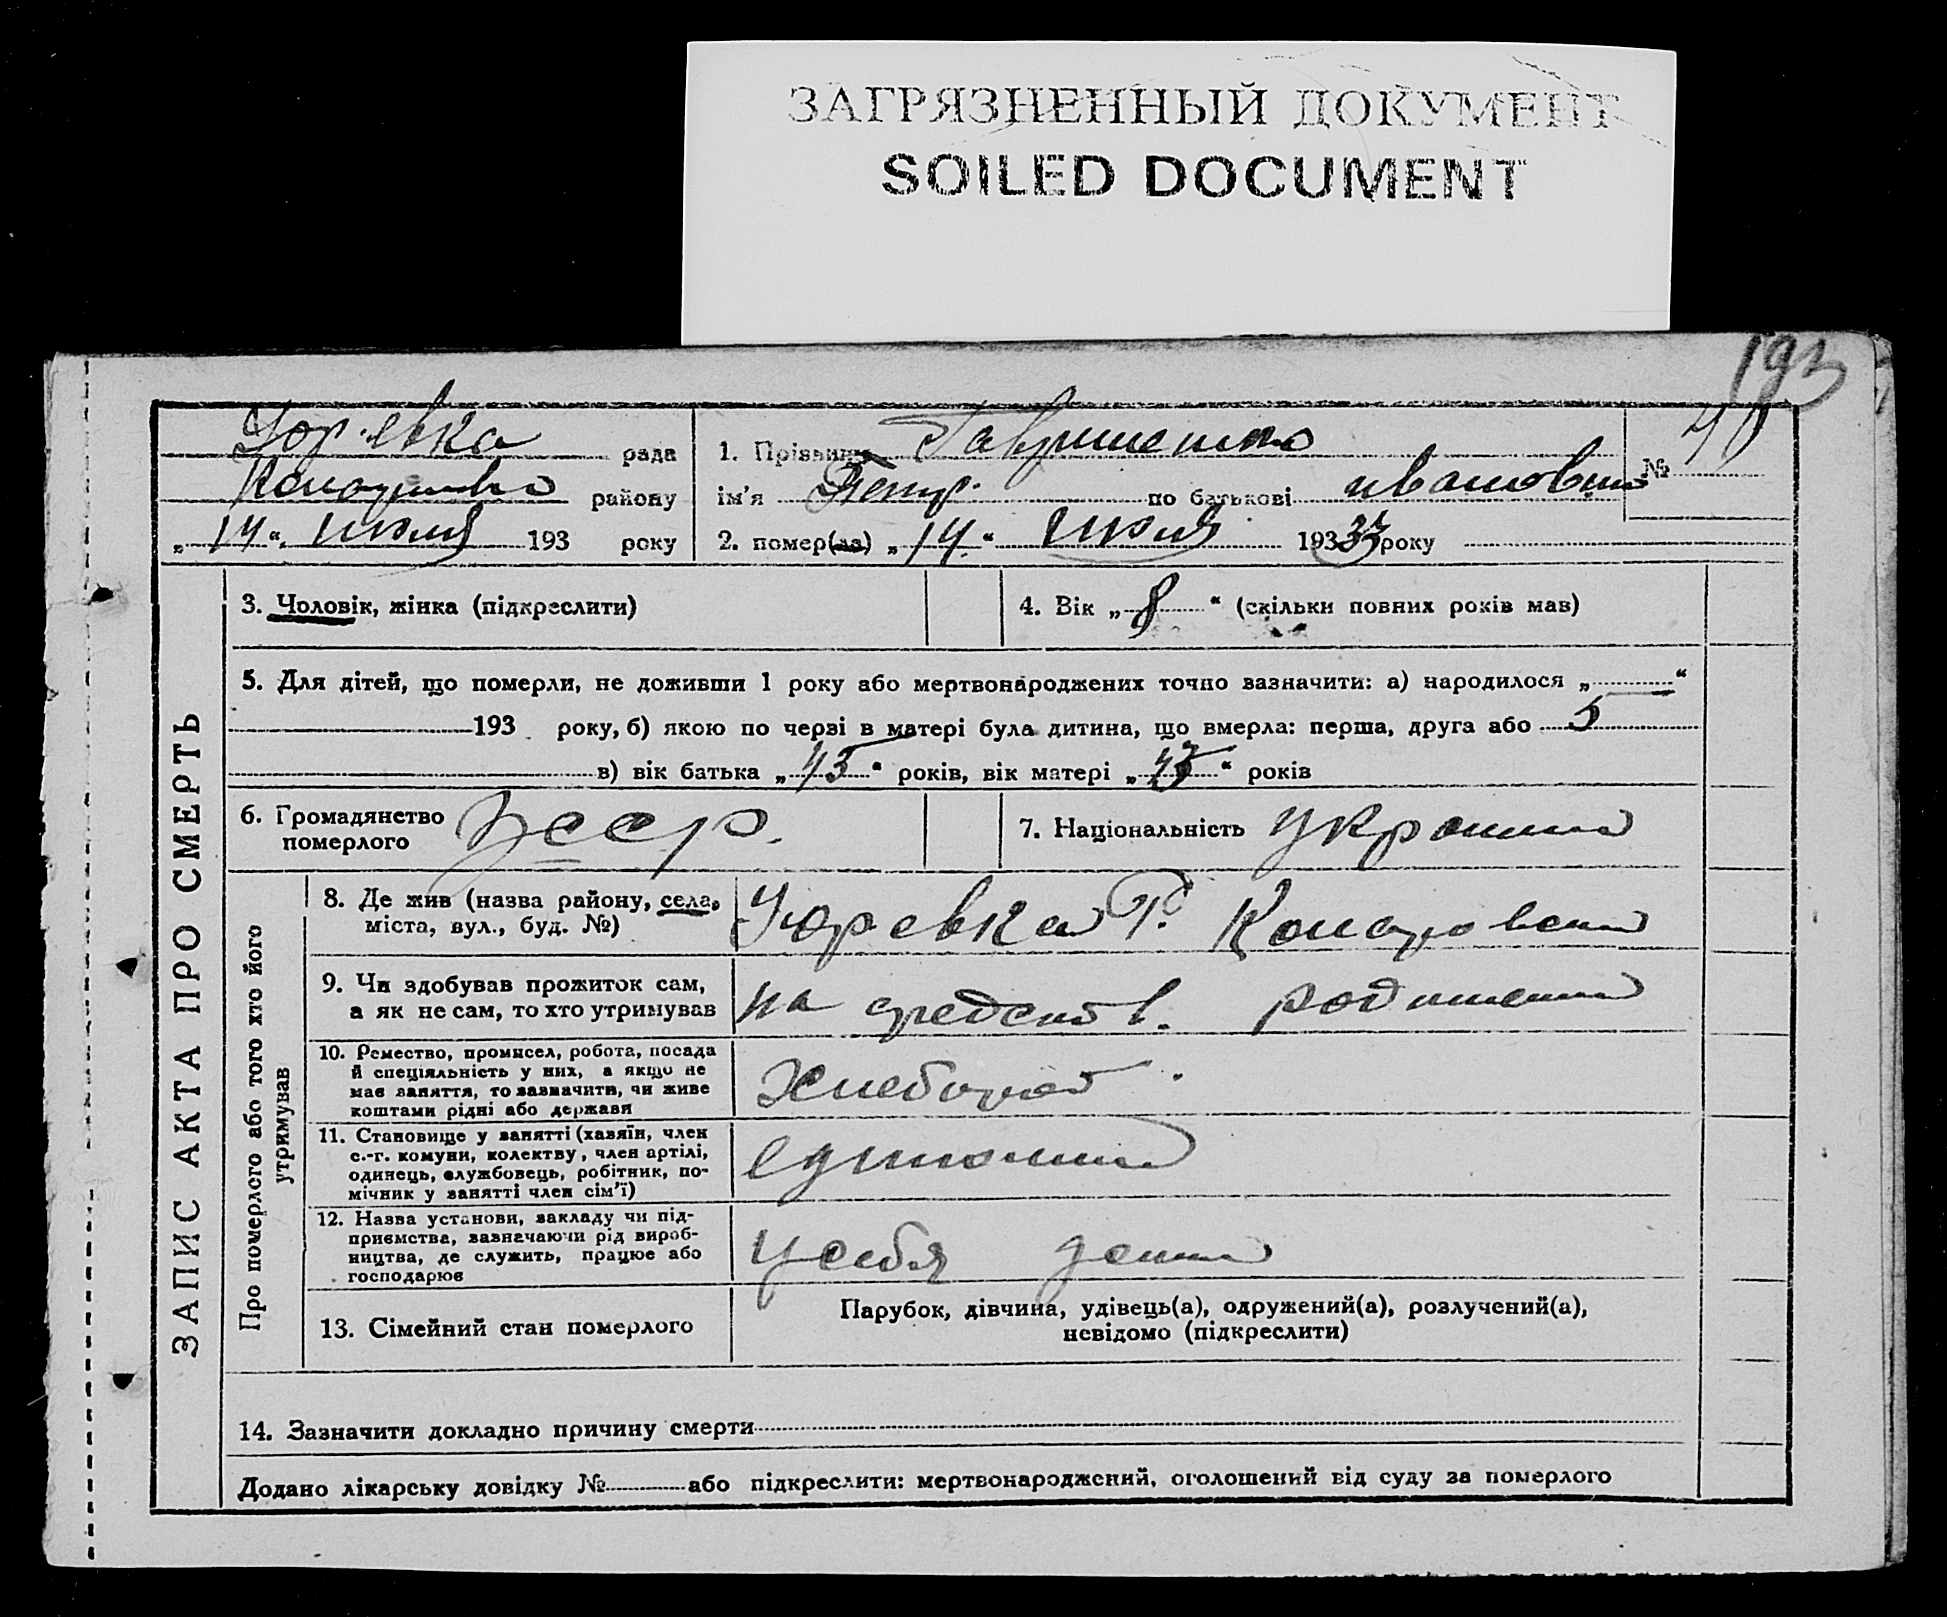 ЗАГРЯЗНЕННЫЙ ДОКУМЕНТ
SOILED DOCUMENT
193
Юревка рада
району
„14“ июля 193 року
1. Прізвище Гавришенко
ім'я Петр по батькові иванович
№ 40
2. помер(ла) „14“ июля 1933 року
ЗАПИС АКТА ПРО СМЕРТЬ
3. Чоловік, жінка (підкреслити)
4. Вік „8“ (скільки повних років мав)
5. Для дітей, що померли, не доживши 1 року або мертвонароджених точно зазначити: а) народилося „ “
193 року, б) якою по черві в матері була дитина, що вмерла: перша, друга або 5
в) вік батька „45“ років, вік матері „43“ років
6. Громадянство
померлого
УССР.
7. Національність украинец
Про померлого або того хто його
утримував
8. Де жив (назва району, села,
міста, вул., буд. №)
Юревка Р.
9. Чи здобував прожиток сам,
а як не сам, то хто утримував
на средств. родителей
10. Ремество, промисел, робота, посада
й спеціяльність у них, а якщо не
має заняття, то зазначити, чи живе
коштами рідні або держави
Хлебороб
11. Становище у занятті (хазяїн, член
с.-г. комуни, колективу, член артілі,
одинець, службовець, робітник, по-
мічник у занятті член сім'ї)
единолич
12. Назва установи, закладу чи під-
приємства, зазначаючи рід вироб-
ництва, де служить, працює або
господарює
у себя дома
13. Сімейний стан померлого
Парубок, дівчина, удівець(а), одружений(а), розлучений(а),
невідомо (підкреслити)
14. Зазначити докладно причину смерти
Додано лікарську довідку № або підкреслити: мертвонароджений, оголошений від суду за померлого